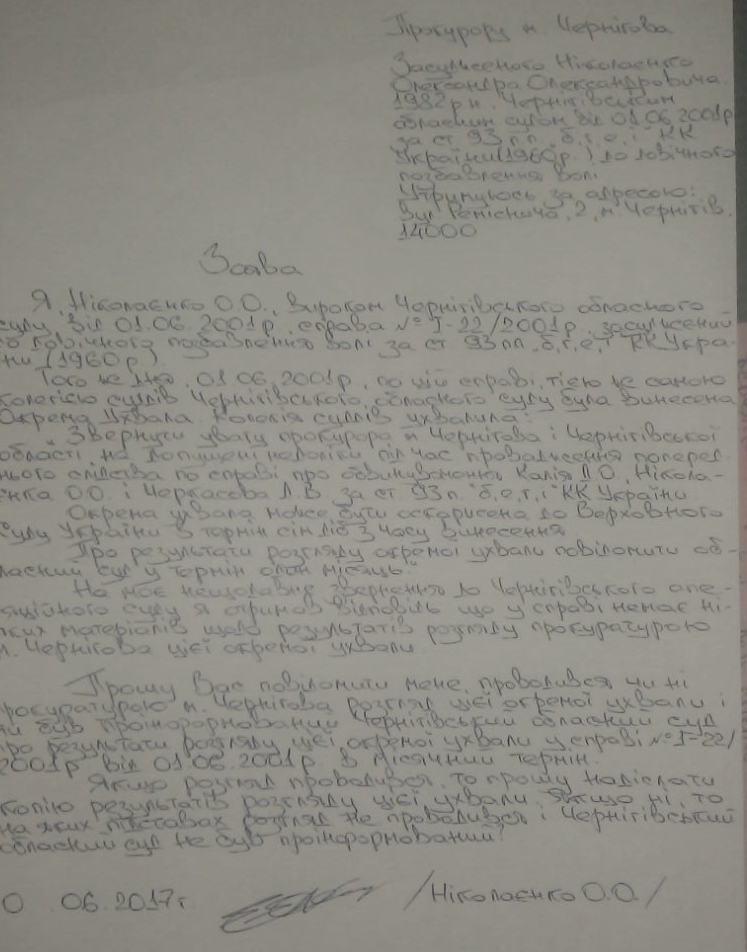 Прокурору м. Чернігова
Засудженого Ніколаєнко
Олександра Олександровича
1982р.н. Чернігівським
обласним судом від 01.06.2001р
за ст 93 пп. б, г, е, і КК
України (1960р.) до довічного
позбавлення волі.
Утримуюсь за адресою:
Вул Ремісніча, 2, м. Чернігів.
14000
Заява
Я, Ніколаєнко О.О., вироком Чернігівського обласного
суду від 01.06.2001р. справа № І-22/2001р. засуджений
до довічного позбавлення волі за ст 93 пп. б, г, е, і КК Укра-
їни (1960р).
Того ж дня, 01.06.2001р, по цій справі, тією ж самою
колегією суддів Чернігівського обласного суду була винесена
Окрема Ухвала. Колегія суддів ухвалила:
"Звернути увагу прокурора м Чернігова і Чернігівської
області на допущені недоліки під час провадження поперед
нього слідства по справі про обвинувачення Калія Д.О, Нікола-
єнка О.О. і Черкасова Л.В за ст 93 п. б, е, г, і КК України
Окрема ухвала може бути оскаржена до Верховного
Суду України в термін сім діб з часу винесення.
Про результати розгляду окремої ухвали повідомити об-
ласний суд у термін один місяць."
На моє нещодавнє звернення до Чернігівського апе-
ляційного суду я отримав відповідь що у справі немає ні-
яких матеріалів щодо результатів розгляду прокуратурою
м. Чернігова цієї окремої ухвали.
Прошу Вас повідомити мене, проводився чи ні
прокуратурою м. Чернігова розгляд цієї окремої ухвали і
чи був проінформований Чернігівський обласний суд
про результати розгляду цієї окремої ухвали у справі № І-22/
2001р від 01.06.2001р. в місячний термін.
Якщо розгляд проводився, то прошу надіслати
копію результатів розгляду цієї ухвали. Якщо ні, то
на яких підставах розгляд не проводився і Чернігівський
обласний суд не був проінформований?
0 06.2017г /Ніколаєнко О.О./